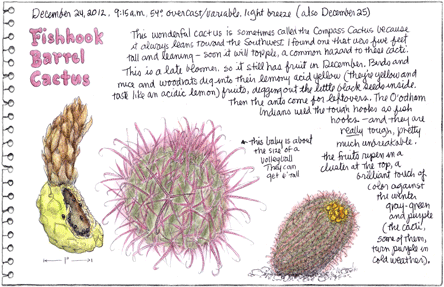 December 24, 2012, 9:15 am, 54° overcast/variable, light breeze (also December 25)
Fishhook
Barrel
Cactus
This wonderful cactus is sometimes called the Compass Cactus because
it always leans toward the Southwest. I found one that was five feet
tall and leaning - soon it will topple, a common hazard to these cacti.
This is a late bloomer, so it still has fruit in December. Birds and
mice and woodrats dig into their lemony acid yellow (they're yellow and
taste like an acidic lemon) fruits, digging out the little black seeds inside.
Then the ants come for leftovers. The O'odham
Indians used the tough hooks as fish
hooks - and they are
really tough, pretty
much unbreakable.
The fruits ripen in a
cluster at the top, a
brilliant touch of
color against
the winter
gray-green
and purple
(the cacti,
some of them,
turn purple in
cold weather).
this baby is about
the size of a
volleyball
They can
get 6' tall
1"